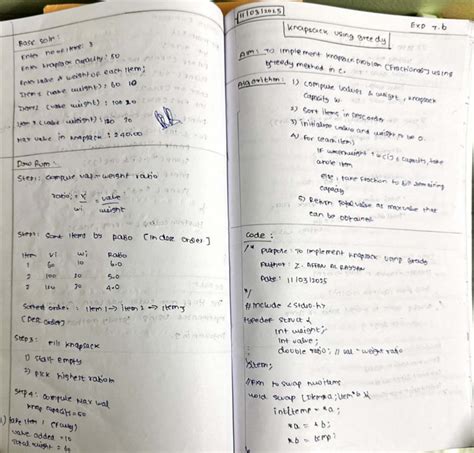 Base soln:
Enter no of items: 3
Enter knapsack capacity: 50
Enter value & weight of each item:
Item 1 (value weight): 60 10
Item 2 (value weight): 100 20
Item 3 (value weight): 120 30
Max value in knapsack: 240.00
Dry Run:
Step 1: compute value weight ratio
ratio: = v/wi = value/weight
Step 2: Sort items by Ratio [in desc order]
Item vi wi Ratio
1 60 10 6.0
2 100 20 5.0
3 120 30 4.0
Sorted order: item 1 → item 2 → item 3
(Desc order)
Step 3: Fill knapsack
1) start empty
2) pick highest ratio
Step 4: compute Max val
knap capacity = 50
1) take item 1 (fully)
value added = 
Total weight = 
11/03/2025
Exp 7.b
Knapsack using greedy
Aim: To implement knapsack problem (fractional) using
greedy method in c.
Algorithm: 1) compute values & weight, knapsack
capacity w
2) Sort items in Desc order
3) initialize value and weight to be 0.
4) for (each item)
If
whole item
else, take fraction to fill remaining
capacity
5) Return total value as max value that
can be obtained.
Code:
/* purpose: To implement knapsack using greedy
Author: Z.
Date: 11/03/2025
*/
#include <stdio.h>
typedef struct {
int weight;
int value;
double ratio; // val - weight ratio
} Item;
// Fxn to swap two items
void swap (Item *a, Item *b) {
int temp = *a;
*a = *b;
*b = temp;